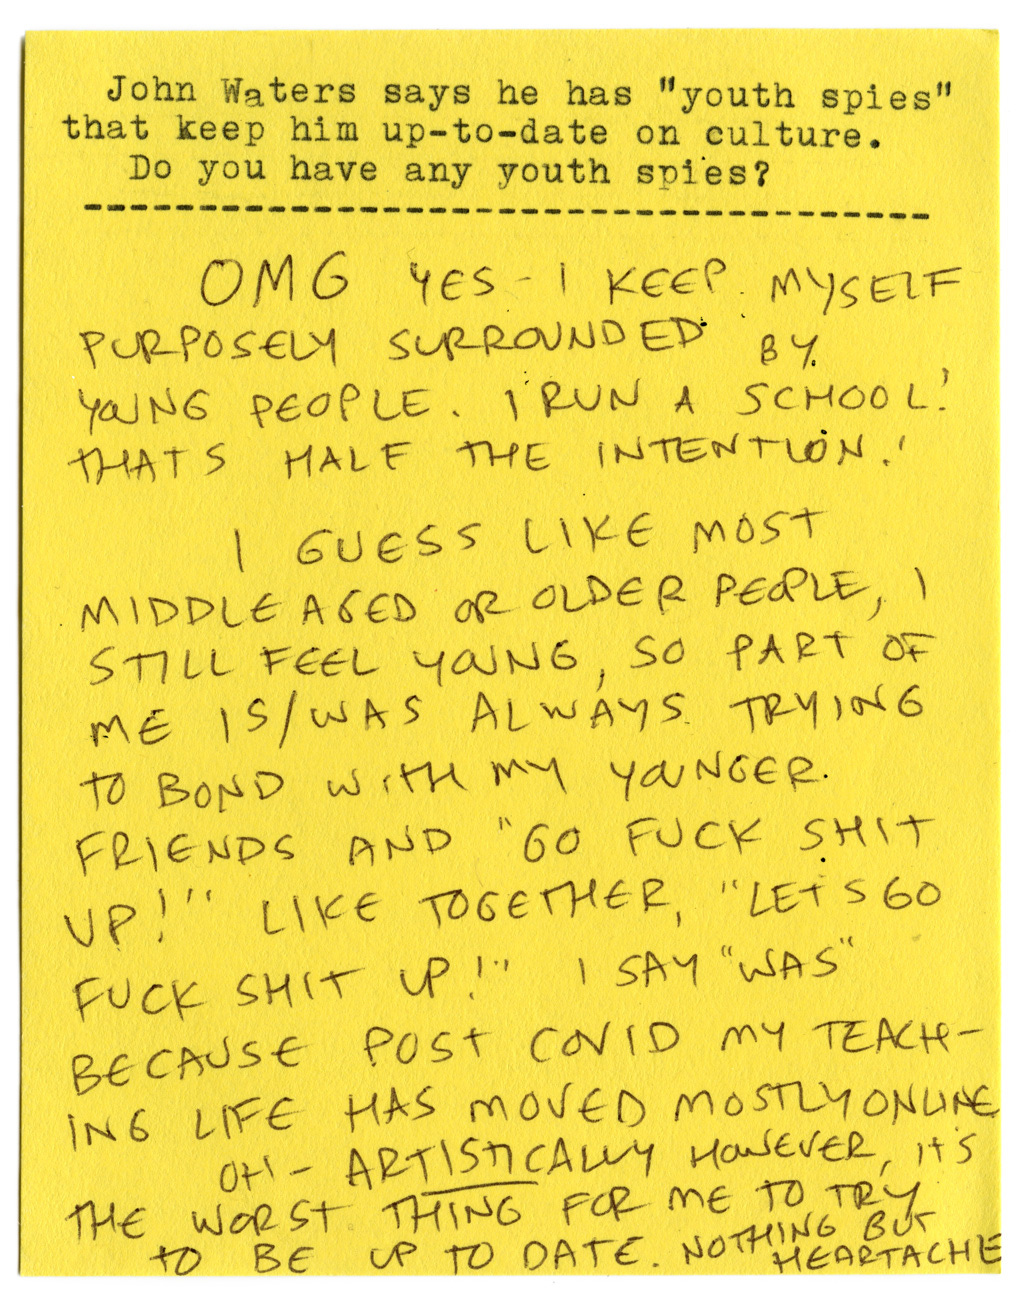 John Waters says he has "youth spies"
that keep him up-to-date on culture.
Do you have any youth spies?
-------------------------------------
OMG YES - I KEEP MYSELF
PURPOSELY SURROUNDED BY
YOUNG PEOPLE. I RUN A SCHOOL!
THATS HALF THE INTENTION!
I GUESS LIKE MOST
MIDDLE AGED OR OLDER PEOPLE, I
STILL FEEL YOUNG, SO PART OF
ME IS/WAS ALWAYS TRYING
TO BOND WITH MY YOUNGER
FRIENDS AND "GO FUCK SHIT
UP!" LIKE TOGETHER, "LET'S GO
FUCK SHIT UP!" I SAY "WAS"
BECAUSE POST COVID MY TEACH-
ING LIFE HAS MOVED MOSTLY ONLINE
OH - ARTISTICALLY HOWEVER, IT'S
THE WORST THING FOR ME TO TRY
TO BE UP TO DATE. NOTHING BUT
HEARTACHE